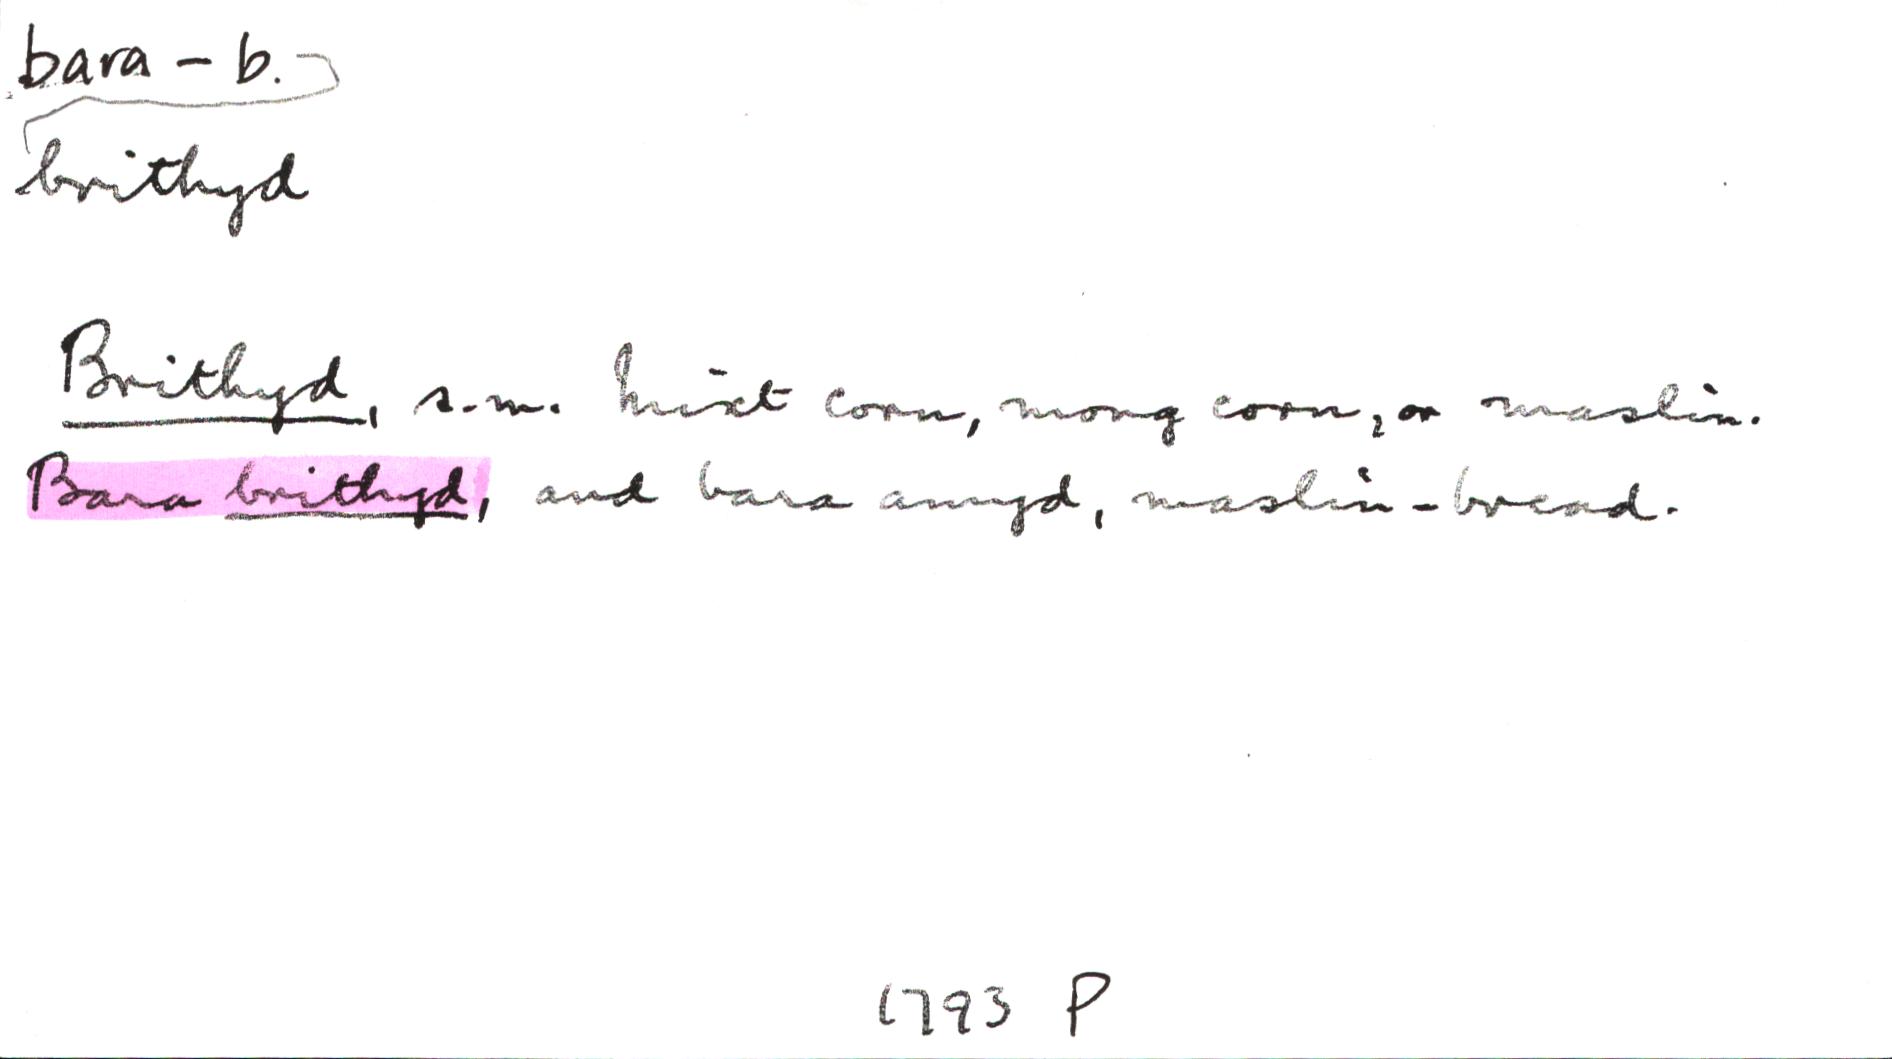 bara – b.
brithyd
Brithyd, s.m. Mixt corn, mong corn, or maslin.
Bara brithyd, and bara amyd, maslin-bread.
1793 P